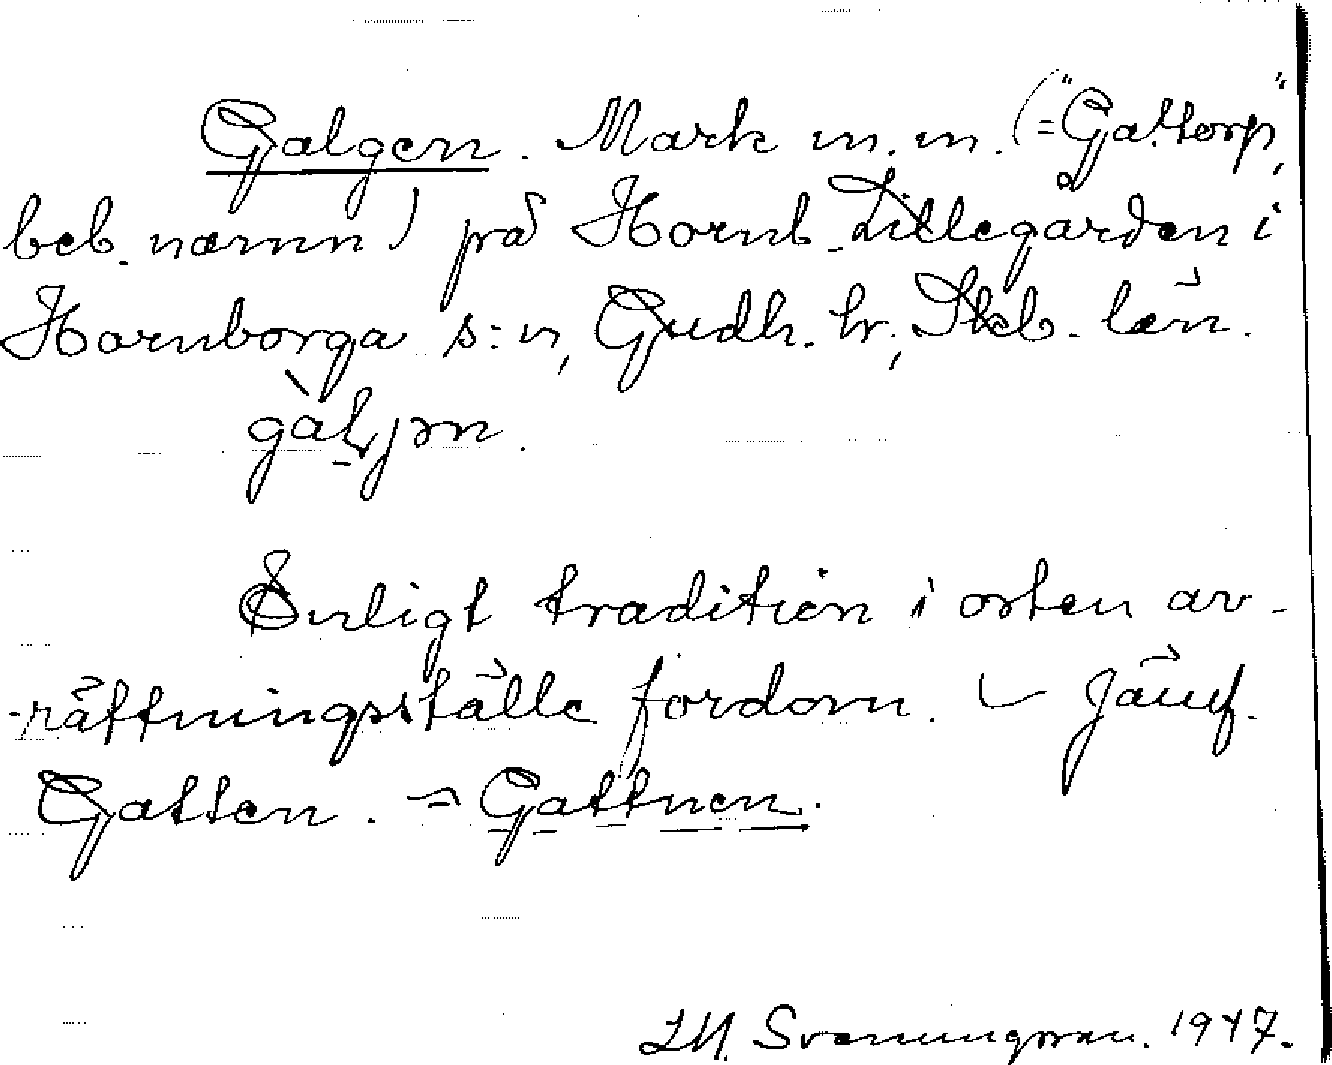 Galgen. Mark m.m. (= "Gattorp",
beb. namn) på Hornb. Lillegården i
Hornborga s:n, Gudh. hr, Skb. län.
gàljən.
Enligt tradition i orten av-
rättningsställe fordom. Jämf.
Gatten. = Gattnen.
Svenungsson. 1947.